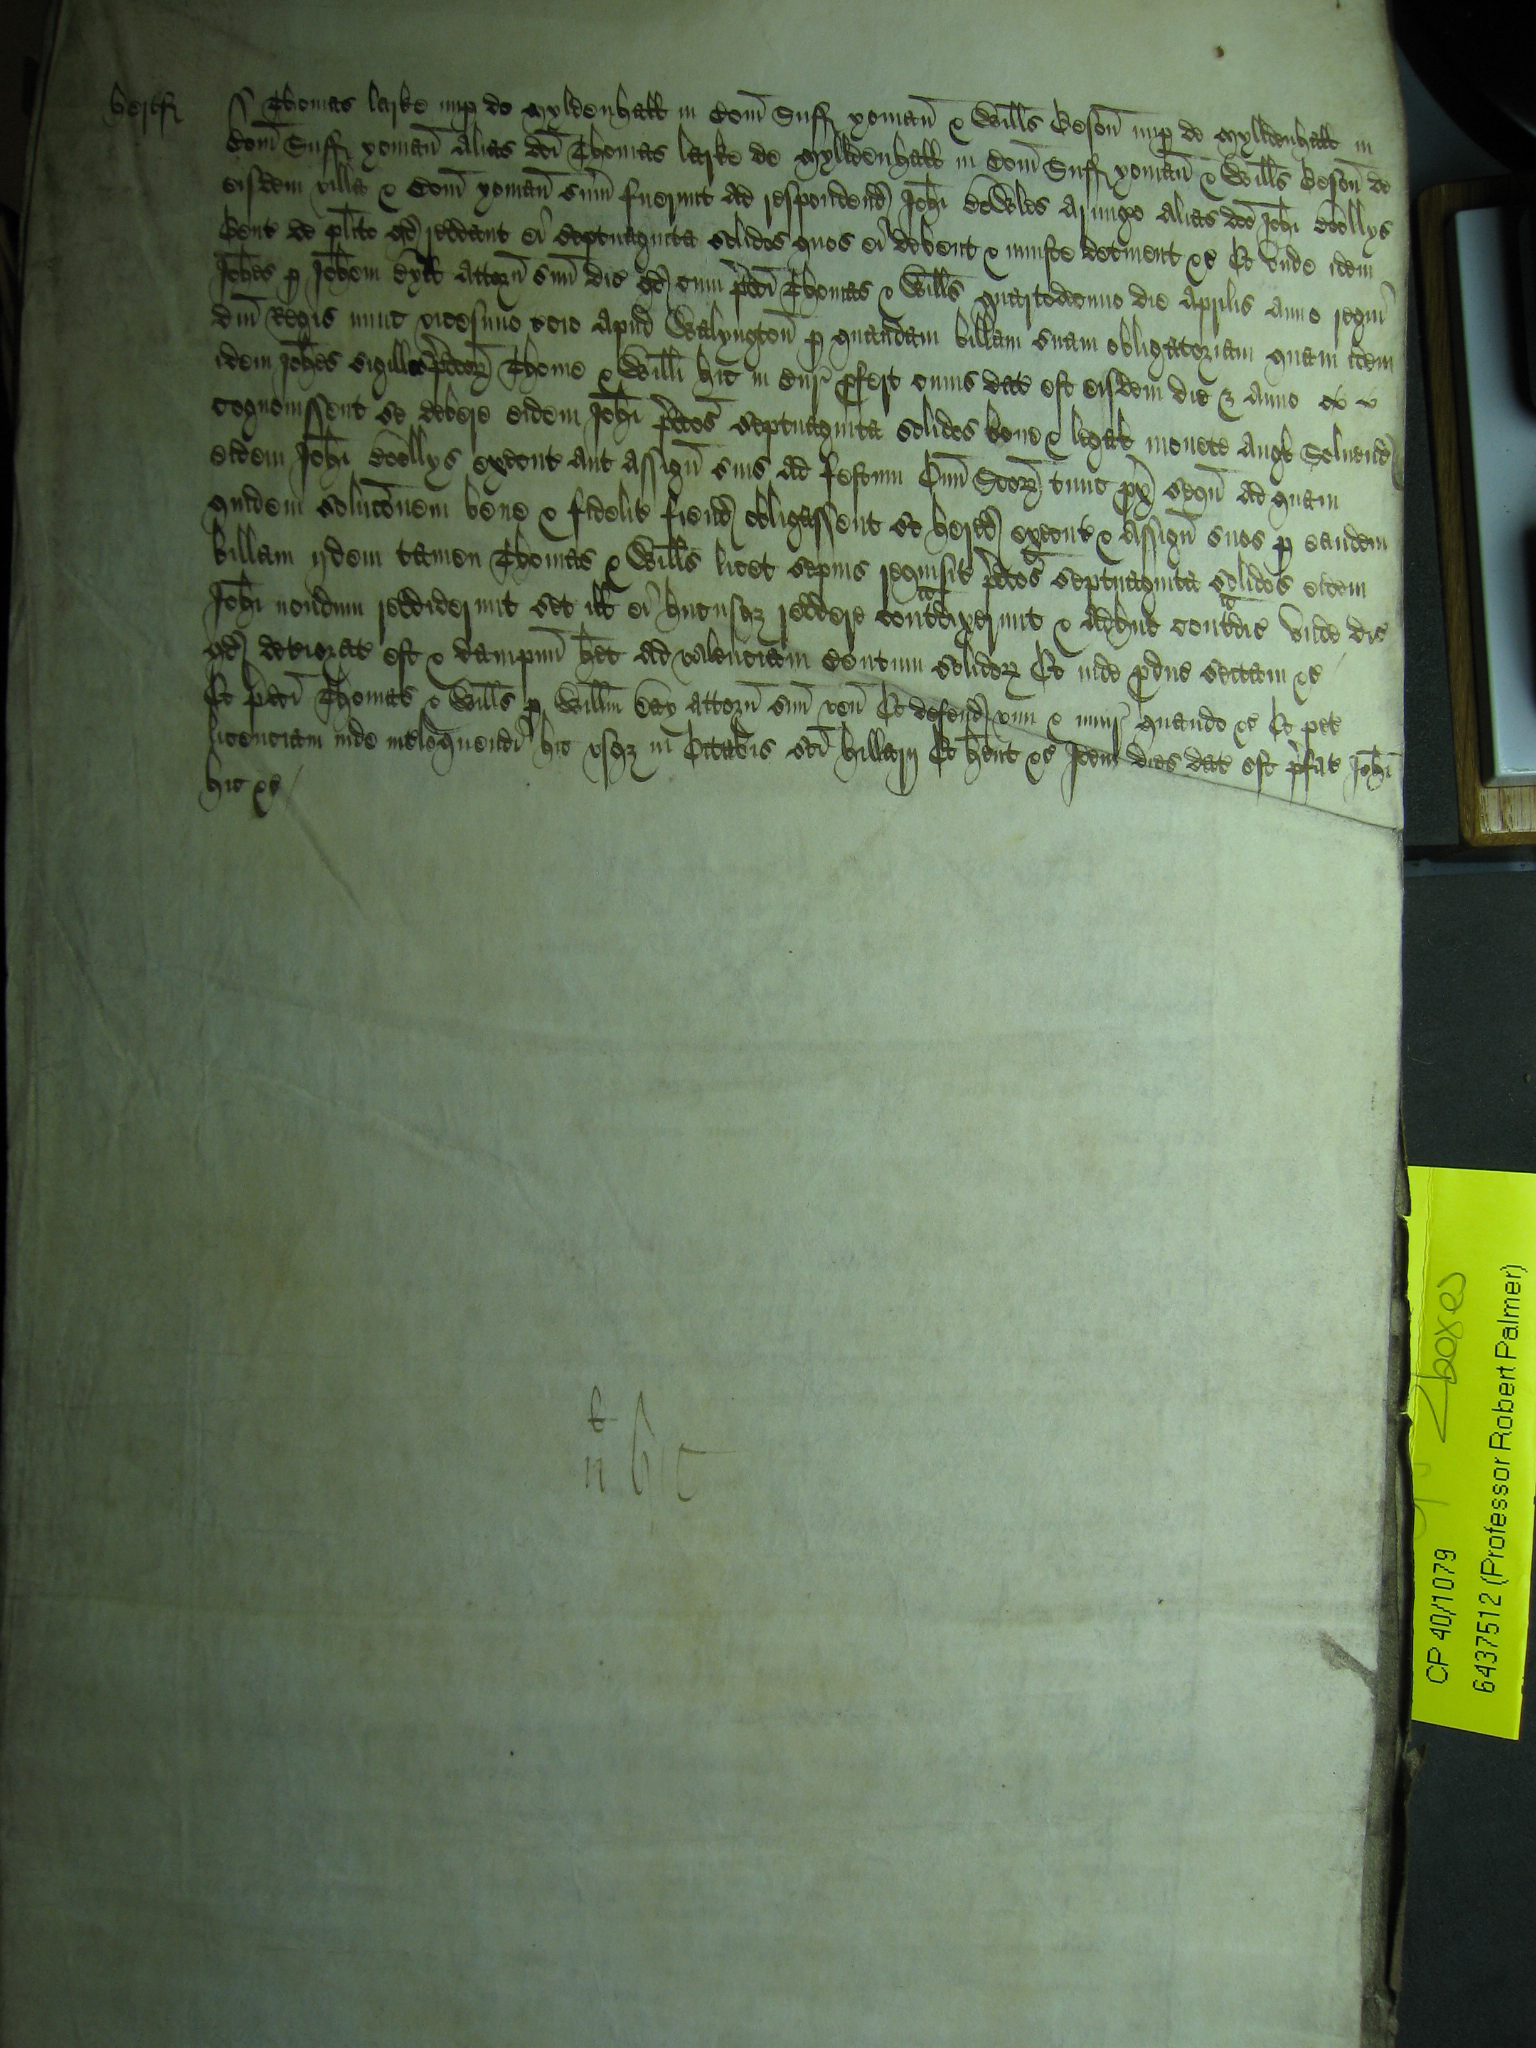 hertf ss Thomas larke nup de Myldenhall in Com Suff yoman & Wills Beson nup de Mylldenhall in
Com Suff yoman alias dci Thomas larke de Mylldenhall in Com Suff yoman & Wills Beson de
eisdem villa & Com yoman sum fuerunt ad respondend Johi Armigo alias dco Johi
Gent de plito qd reddant ei septuaginta solidos quos ei debent & iniuste detinent &c Et unde idem
Johes p Johem Hyll Attorn suu dic qd cum pdci Thomas & Wills quartodecimo die Aprilis anno regni
dni Regis nunc vicesimo apud Walyngton p quandam billam suam obligatoriam quam idem
idem Johes sigill pdcor Thome & Willi hic in Cur pfert cuius dat est eisdem die & anno
cognovissent se debere eidem Johi pdcos septuaginta solidos bone & legal monete Angl Solvend
eidem Johi execut aut assign suis ad festum Omn Scor tunc px sequ ad quam
quidem solucionem bene & fidelit fiend obligassent se hered execut & assign suos p eandem
billam ijdem tamen Thomas & Wills licet sepius requisit pdcos septuaginta solidos eidem
Johi nondum reddiderunt set ill ei hucusqz reddere contradixerunt & adhuc contradic Unde dic
qd deteriorat est & dampnu het ad valenciam Centum solidor Et inde pduc sectam &c
Et pdci Thomas & Wills p Willm Day attorn suu ven Et defend vim & iniur quando &c Et pet
licenciam inde interloquendi hic usqz in Octabis sci hillarij Et hent &c Idem dies dat est pfat Johi
hic &c
CP 40/1079 2 boxes
6437512 (Professor Robert Palmer)